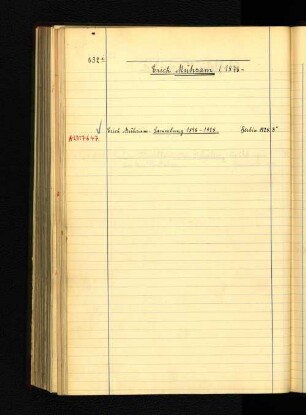 632
Erich Mühsam (1878-
√ Erich Mühsam: Sammlung 1898-1928. Berlin 1928. 8°